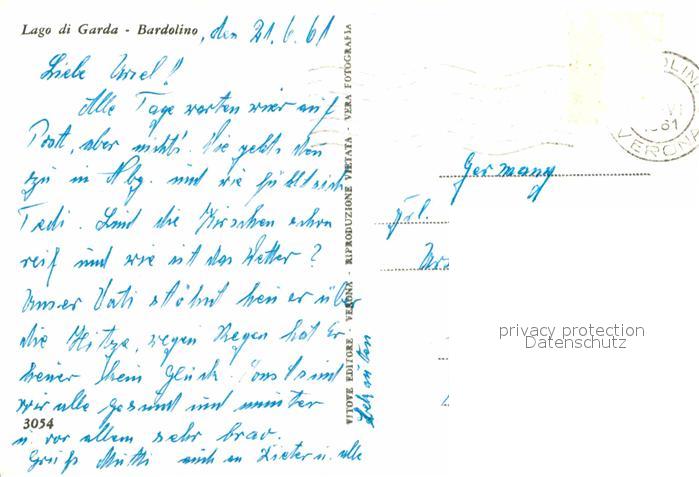 Lago di Garda - Bardolino, den 21.6.61
Liebe Ursel!
Alle Tage warten wir auf
Post, aber nichts. Wie geht's den
in Nbg. und wie fühlt sich
Tedi. Sind die Kirschen schon
reif und wie ist das Wetter?
Unser Vati stöhnt hier er über
die Hitze, wegen Regen hat Er
heuer kein Glück. Sonst sind
wir alle gesund und munter
3054
u. vor allem sehr brav.
Gruß Mutti auch an Dieter u. alle
VITOVE EDITORE - VERONA - RIPRODUZIONE VIETATA - VERA FOTOGRAFIA
Germany
Frl.
Urs
61
VERONA
privacy protection
Datenschutz